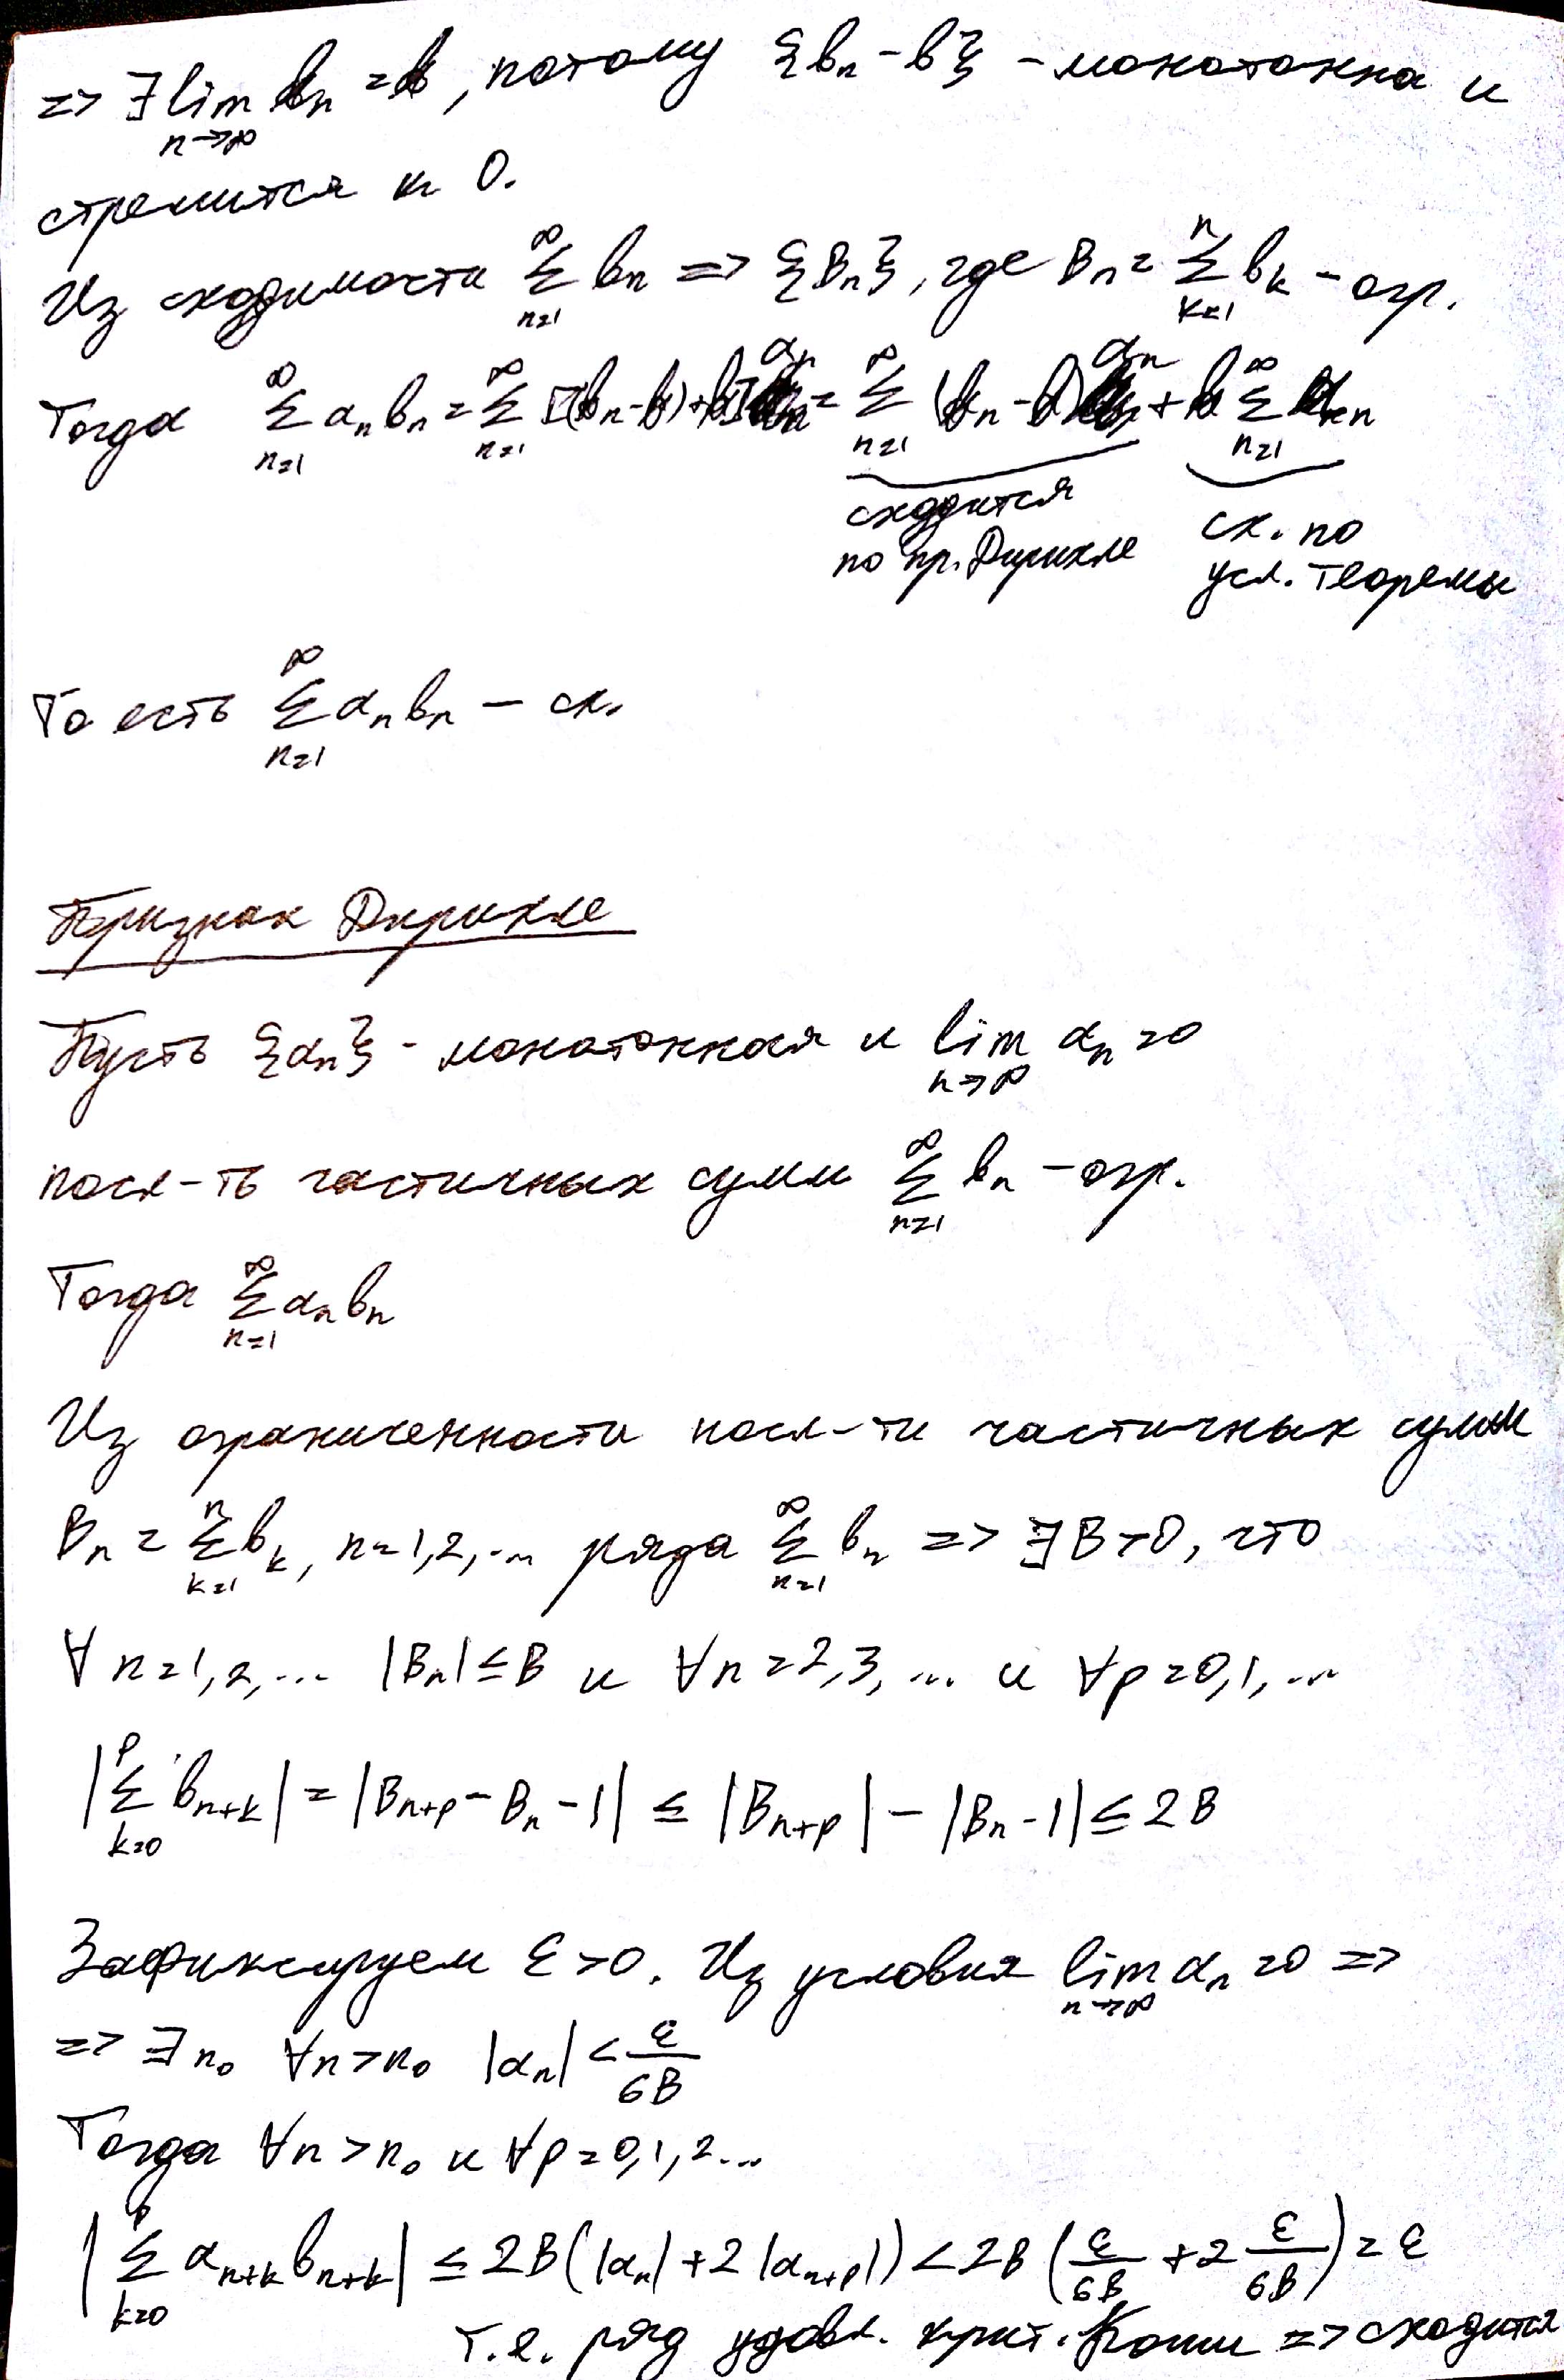 => ∃ lim_{n→∞} b_n = b, потому {b_n - b} - монотонна и
стремится к 0.
Из сходимости ∑_{n=1}^{∞} b_n => {B_n}, где B_n = ∑_{k=1}^{n} b_k - огр.
Тогда ∑_{n=1}^{∞} a_n b_n = ∑_{n=1}^{∞} [(b_n - b) + b] a_n = ∑_{n=1}^{∞} (b_n - b) a_n + b ∑_{n=1}^{∞} a_n
сходится ск. по
по пр. Дирихле усл. теоремы
То есть ∑_{n=1}^{∞} a_n b_n - ск.
Признак Дирихле
Пусть {a_n} - монотонная и lim_{n→∞} a_n = 0
посл-ть частичных сумм ∑_{n=1}^{∞} b_n - огр.
Тогда ∑_{n=1}^{∞} a_n b_n
Из ограниченности посл-ти частичных сумм
B_n = ∑_{k=1}^{n} b_k, n=1,2,... ряда ∑_{n=1}^{∞} b_n => ∃ B>0, что
∀ n=1,2,... |B_n| ≤ B и ∀n=2,3,... и ∀p=0,1,...
|∑_{k=0}^{p} b_{n+k}| = |B_{n+p} - B_n - 1| ≤ |B_{n+p}| - |B_n - 1| ≤ 2B
Зафиксируем ε>0. Из условия lim_{n→∞} a_n = 0 =>
=> ∃ n_0 ∀n>n_0 |a_n| < ε/6B
Тогда ∀n>n_0 и ∀p=0,1,2...
|∑_{k=0}^{p} a_{n+k} b_{n+k}| ≤ 2B(|a_n| + 2|a_{n+p}|) < 2B(ε/6B + 2 ε/6B) = ε
т.е. ряд удовл. крит. Коши => сходится